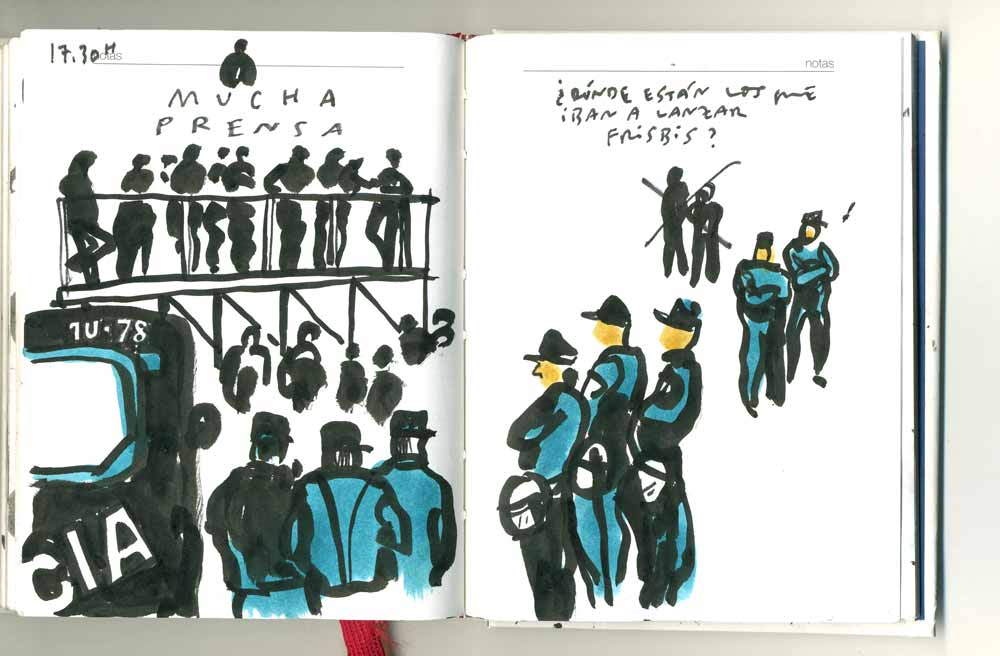 17.30H
notas
MUCHA
PRENSA
1U·78
CIA
notas
¿DÓNDE ESTÁN LOS QUE
IBAN A LANZAR
FRISBIS?